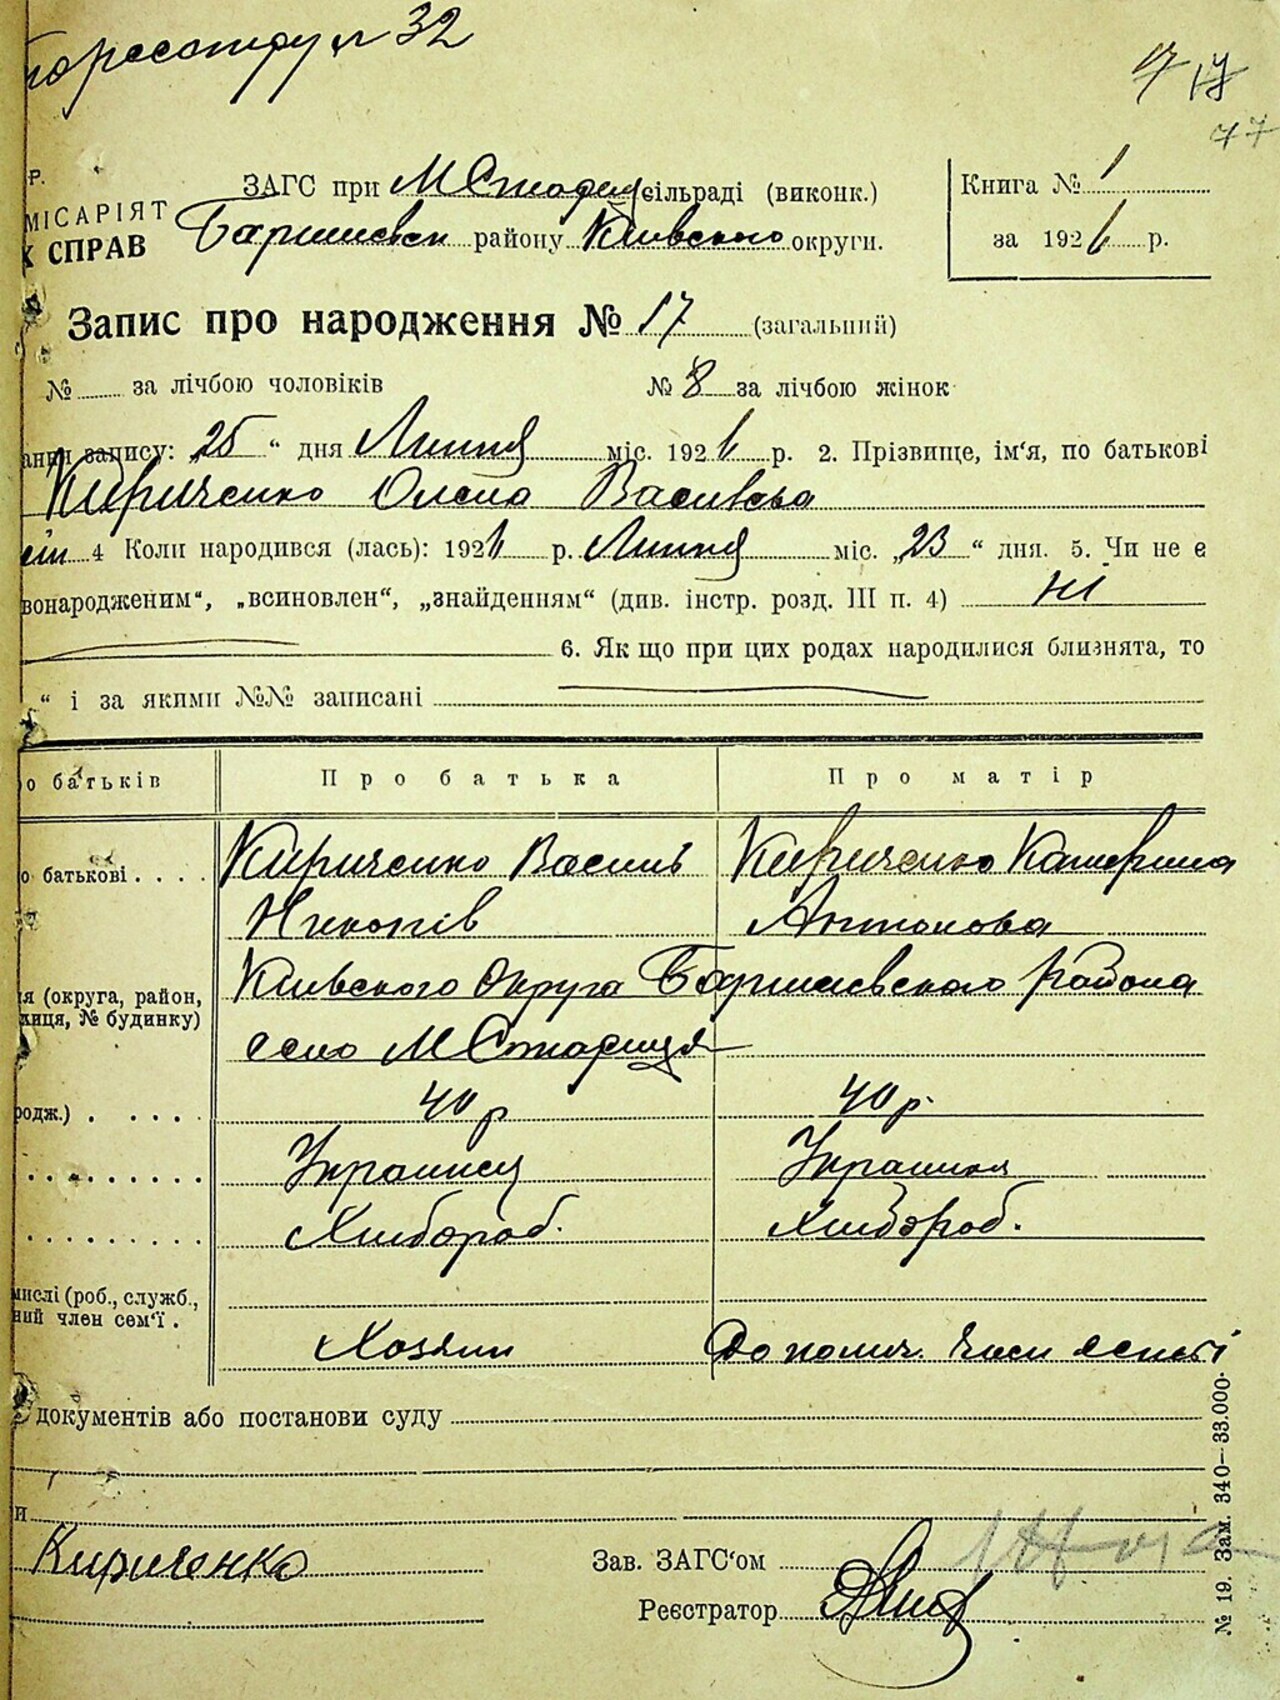 пореєстру № 32
17 17
77
Р.
МІСАРІЯТ
Х СПРАВ
ЗАГС при М Стариц сільраді (виконк.)
Баришевск району Київського округи.
Книга № 1
за 1926 р.
Запис про народження № 17 (загальний)
№ за лічбою чоловіків № 8 за лічбою жінок
ання запису: „25“ дня Липня міс. 1926 р. 2. Прізвище, ім‘я, по батькові
Кириченко Олена Василівна
4 Коли народився (лась): 1926 р. Липня міс. „23“ дня. 5. Чи не є
вонародженим“, „всиновлен“, „знайденням“ (див. інстр. розд. III п. 4) Ні
6. Як що при цих родах народилися близнята, то
“ і за якими №№ записані
о батьків Про батька Про матір
о батькові . . . . Кириченко Василь Кириченко Катерина
Никонів Антонова
я (округа, район, Київского Округа Баришевского района
лиця, № будинку)
село М Старица
родж.) . . . . 40 р 40 р.
Українец Українка
Хлібороб. Хлібороб.
мислі (роб., служб.,
ний член сем‘ї .
Хозяин Допомич. член
документів або постанови суду
и
Кириченко
Зав. ЗАГС‘ом
Реєстратор
№ 19. Зам. 340—33.000.